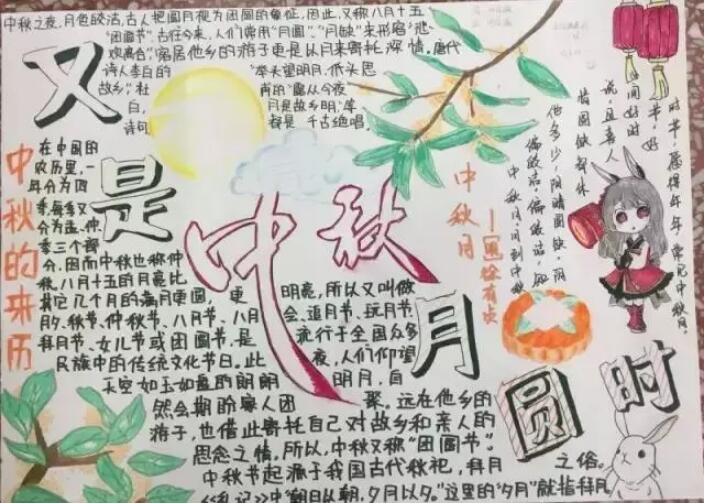 中秋之夜，月色皎洁，古人把圆月视为团圆的象征，因此，又称八月十五
"团圆节"。古往今来，人们常用"月圆"、"月缺"来形容"悲
欢离合"，客居他乡的游子更是以月来寄托深情。唐代
诗人李白的"举头望明月，低头思
故乡"，杜甫的"露从今夜
白，月是故乡明"，等
诗句都是千古绝唱。
又是
中秋
月
圆
时
中秋的来历
在中国的
农历里，一
年分为四
季，每季又
分为孟、仲
季三个部
分，因而中秋也称仲
秋。八月十五的月亮比
其它几个月的满月更圆，更明亮，所以又叫做
月夕、秋节、仲秋节、八月节、八月会、追月节、玩月节、
拜月节、女儿节或团圆节，是流行于全国众多
民族中的传统文化节日。此夜，人们仰望
天空如玉如盘的朗朗明月，自
然会期盼家人团聚，远在他乡的
游子，也借此寄托自己对故乡和亲人的
思念之情。所以，中秋又称"团圆节"。
中秋节起源于我国古代秋祀，拜月之俗。
《礼记》中"朝日以朝，夕月以夕。"这里的"夕月"就指拜月
中秋月
中秋月。月到中秋
偏皎洁。偏皎洁，知
他多少，阴晴圆缺。阴
晴圆缺都休
说，且喜人
间好时
节。好
时节，愿得年年，常见中秋月。